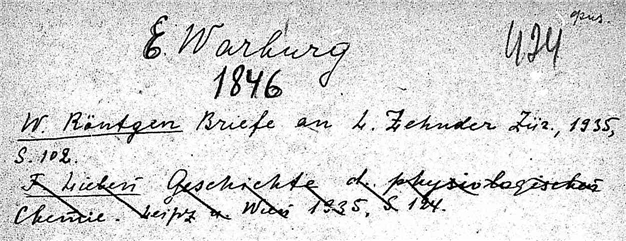 opus.
E. Warburg 434
1846
W. Röntgen Briefe an L. Zehnder Zür., 1935,
S. 102.
F. Lieben Geschichte d. physiologischen
Chemie. Leipz u. Wien 1935, S. 124.